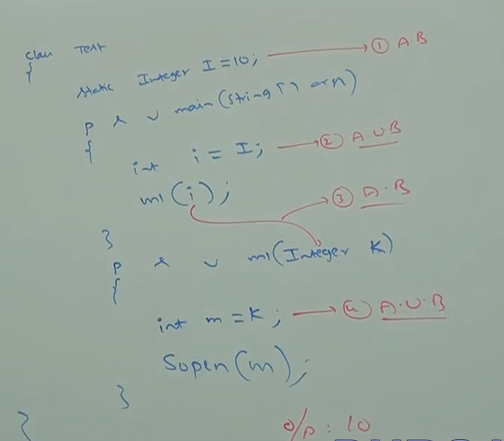 Class Test
{
static Integer I=10; → ① A.B
p s v main(String[] args)
{
int i = I; → ② A.U.B
m1(i); → ③ A.B
}
p s v m1(Integer K)
{
int m = K; → ④ A.U.B
Sopen(m);
}
}
o/p: 10